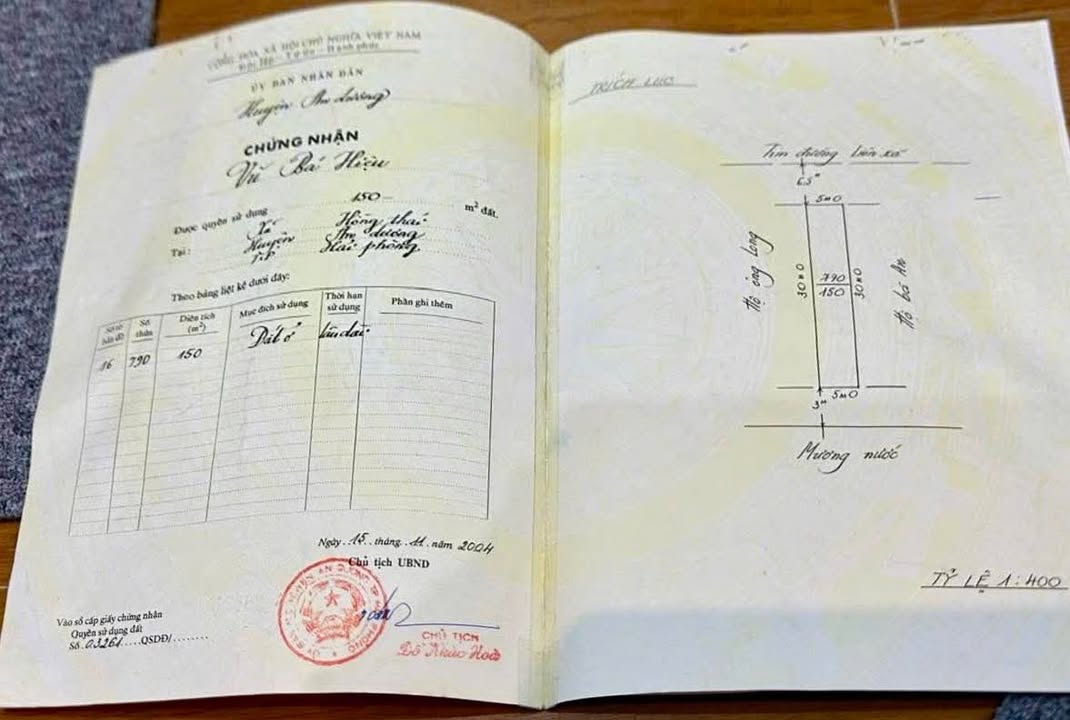 CỘNG HÒA XÃ HỘI CHỦ NGHĨA VIỆT NAM
Độc lập - Tự do - Hạnh phúc
ỦY BAN NHÂN DÂN
Huyện An dương
CHỨNG NHẬN
Vũ Bá Hiệu
Được quyền sử dụng 150 m² đất.
Tại : Xã Hồng thái
Huyện An dương
T.P Hải phòng
Theo bảng liệt kê dưới đây:
Số tờ bản đồ Số thửa Diện tích (m²) Mục đích sử dụng Thời hạn sử dụng Phần ghi thêm
16 790 150 Đất ở lâu dài
Ngày 15 tháng 11 năm 2004
Chủ tịch UBND
CHỦ TỊCH
Vào sổ cấp giấy chứng nhận
Quyền sử dụng đất
Số 03261 QSDĐ/
TRÍCH LỤC
Tim đường liên xã
6,5ᵐ
5m0
Hộ ông Long
30m0
790
150
30m0
Hộ bà An
5m0
3ᵐ
Mương nước
TỶ LỆ 1:400